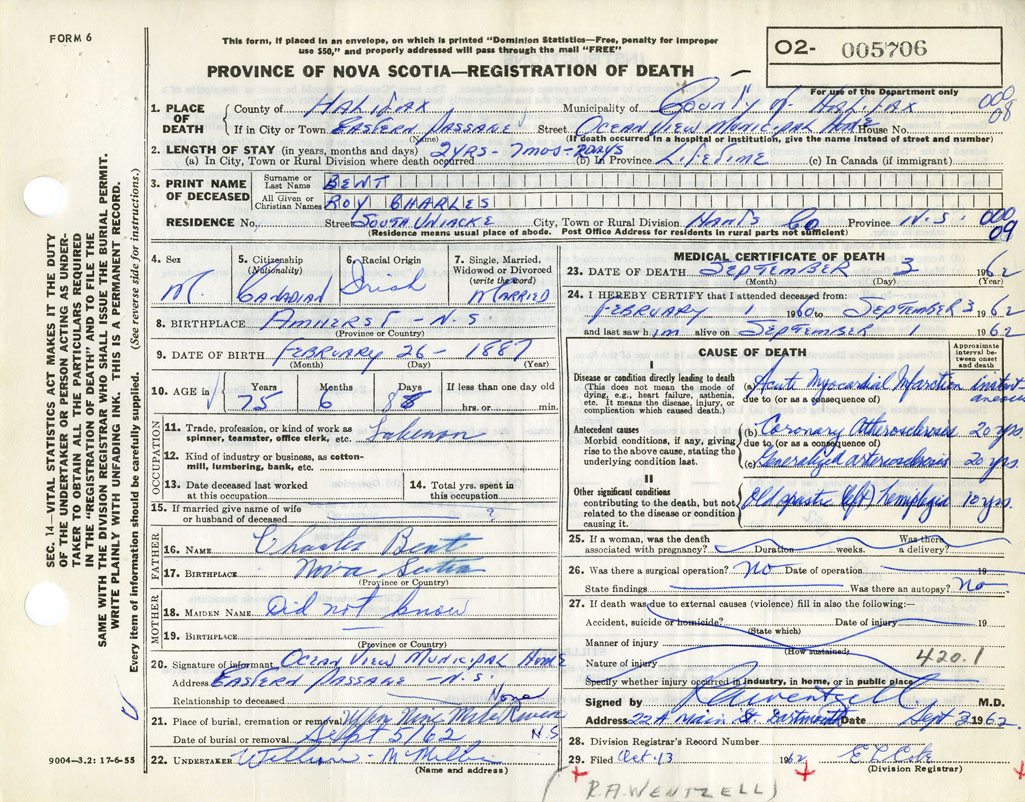 FORM 6
This form, if placed in an envelope, on which is printed "Dominion Statistics—Free, penalty for improper
use $50," and properly addressed will pass through the mail "FREE"
PROVINCE OF NOVA SCOTIA—REGISTRATION OF DEATH
02- 005706
For use of the Department only
1. PLACE OF DEATH
County of HALIFAX Municipality of COUNTY OF HALIFAX 000
08
If in City or Town EASTERN PASSAGE Street OCEAN VIEW MUNICIPAL HOME House No.
(Name) (If death occurred in a hospital or institution, give the name instead of street and number)
2. LENGTH OF STAY (in years, months and days) 2YRS-7MOS-2DAYS
(a) In City, Town or Rural Division where death occurred (b) In Province LIFETIME (c) In Canada (if immigrant)
3. PRINT NAME OF DECEASED
Surname or Last Name BENT
All Given or Christian Names ROY CHARLES
RESIDENCE No. Street SOUTH UNIACKE City, Town or Rural Division HANTS CO Province N.S. 000
09
(Residence means usual place of abode. Post Office Address for residents in rural parts not sufficient)
4. Sex 5. Citizenship 6. Racial Origin 7. Single, Married,
(Nationality) Widowed or Divorced
(write the word)
M. CANADIAN Irish MARRIED
8. BIRTHPLACE AMHERST - N.S.
(Province or Country)
9. DATE OF BIRTH FEBRUARY 26 - 1887
(Month) (Day) (Year)
10. AGE in Years Months Days If less than one day old
75 6 8 hrs. or min.
OCCUPATION
11. Trade, profession, or kind of work as
spinner, teamster, office clerk, etc.
12. Kind of industry or business, as cotton-
mill, lumbering, bank, etc.
13. Date deceased last worked 14. Total yrs. spent in
at this occupation this occupation
15. If married give name of wife
or husband of deceased ?
FATHER
16. NAME Charles Bent
17. BIRTHPLACE Nova Scotia
(Province or Country)
MOTHER
18. MAIDEN NAME Did not know
19. BIRTHPLACE
(Province or Country)
20. Signature of informant OCEAN VIEW MUNICIPAL HOME
Address EASTERN PASSAGE - N.S.
Relationship to deceased None
21. Place of burial, cremation or removal Nine Mile River
N.S
Date of burial or removal Sept 5/62
22. UNDERTAKER William McMillin
(Name and address)
MEDICAL CERTIFICATE OF DEATH
23. DATE OF DEATH SEPTEMBER 3 1962
(Month) (Day) (Year)
24. I HEREBY CERTIFY that I attended deceased from:
FEBRUARY 1 1960 to SEPTEMBER 3 1962
and last saw h im alive on SEPTEMBER 1 1962
CAUSE OF DEATH Approximate interval between onset and death
I
Disease or condition directly leading to death
(This does not mean the mode of
dying, e.g., heart failure, asthenia,
etc. It means the disease, injury, or
complication which caused death.)
(a) Acute Myocardial Infarction instantaneous
due to (or as a consequence of)
Antecedent causes
Morbid conditions, if any, giving
rise to the above cause, stating the
underlying condition last.
(b) Coronary Atherosclerosis 20 yrs.
due to (or as a consequence of)
(c) Generalized arteriosclerosis 20 yrs.
II
Other significant conditions
contributing to the death, but not
related to the disease or condition
causing it.
Old spastic (left) hemiplegia 10 yrs.
25. If a woman, was the death Was there
associated with pregnancy? Duration weeks. a delivery?
26. Was there a surgical operation? No Date of operation 19
State findings Was there an autopsy? No
27. If death was due to external causes (violence) fill in also the following:—
Accident, suicide or homicide? Date of injury 19
(State which)
Manner of injury
(How sustained)
Nature of injury 420.1
Specify whether injury occurred in industry, in home, or in public place
Signed by RA Wentzell M.D.
Address 22A Main St Dartmouth Date Sept 3 1962
28. Division Registrar's Record Number
29. Filed Oct. 13 1962
(Division Registrar)
(R.A. WENTZELL)
SEC. 14—VITAL STATISTICS ACT MAKES IT THE DUTY
OF THE UNDERTAKER OR PERSON ACTING AS UNDER-
TAKER TO OBTAIN ALL THE PARTICULARS REQUIRED
IN THE "REGISTRATION OF DEATH" AND TO FILE THE
SAME WITH THE DIVISION REGISTRAR WHO SHALL ISSUE THE BURIAL PERMIT.
WRITE PLAINLY WITH UNFADING INK. THIS IS A PERMANENT RECORD.
Every item of information should be carefully supplied. (See reverse side for instructions.)
9004—3.2: 17-6-55